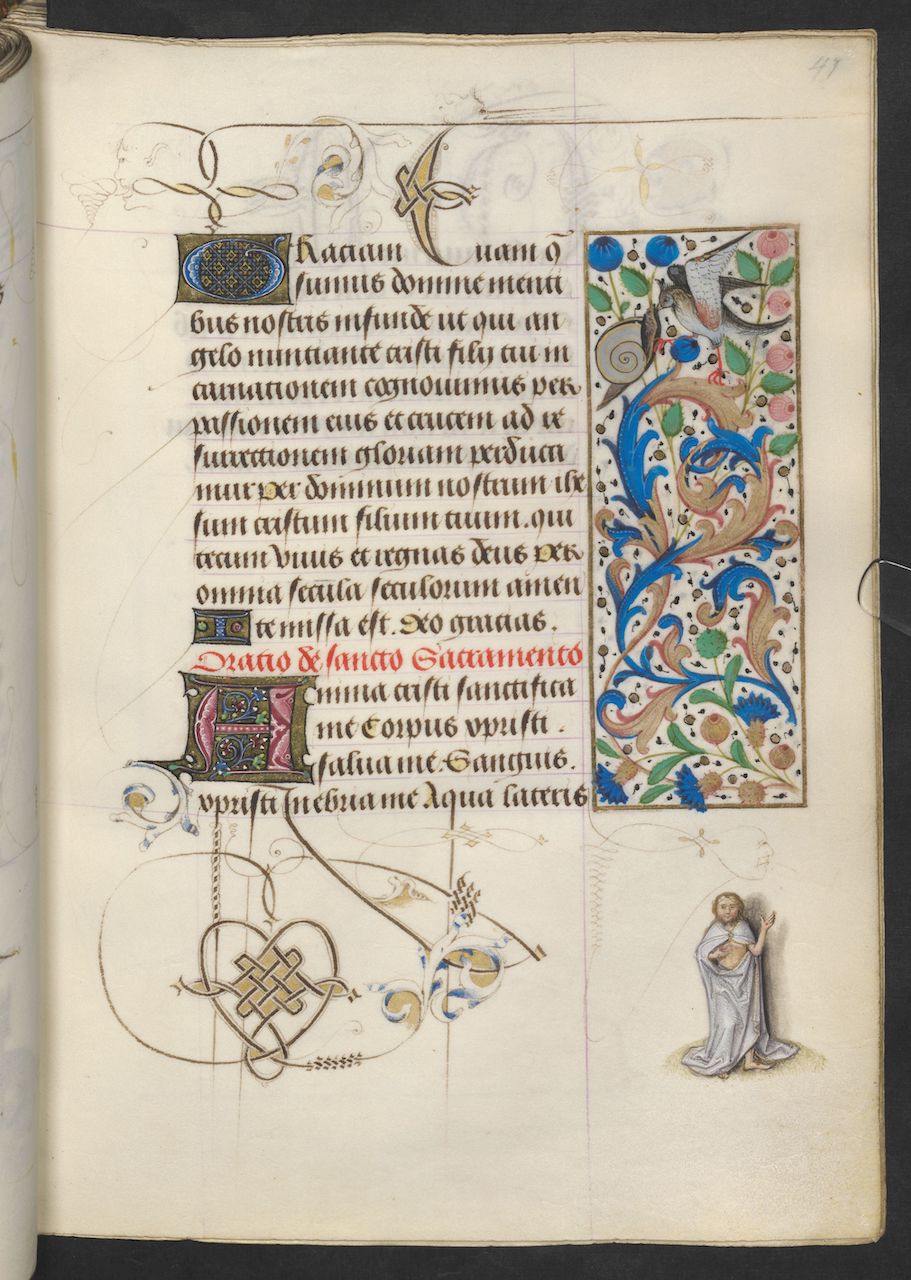 47
Graciam tuam q̄
sumus domine menti
bus nostris infunde ut qui an
gelo nunciante cristi filij tui in
carnationem cognouimus per
passionem eius et crucem ad re
surrectionem gloriam perduca
mur per dominum nostrum ihe
sum cristum filium tuum. qui
tecum viuis et regnas deus per
omnia secula seculorum amen
Ite missa est. Deo gracias.
Oratio de sancto Sacramento
Anima cristi sanctifica
me Corpus xpristi.
salua me. Sanguis.
xpristi Inebria me Aqua lateris